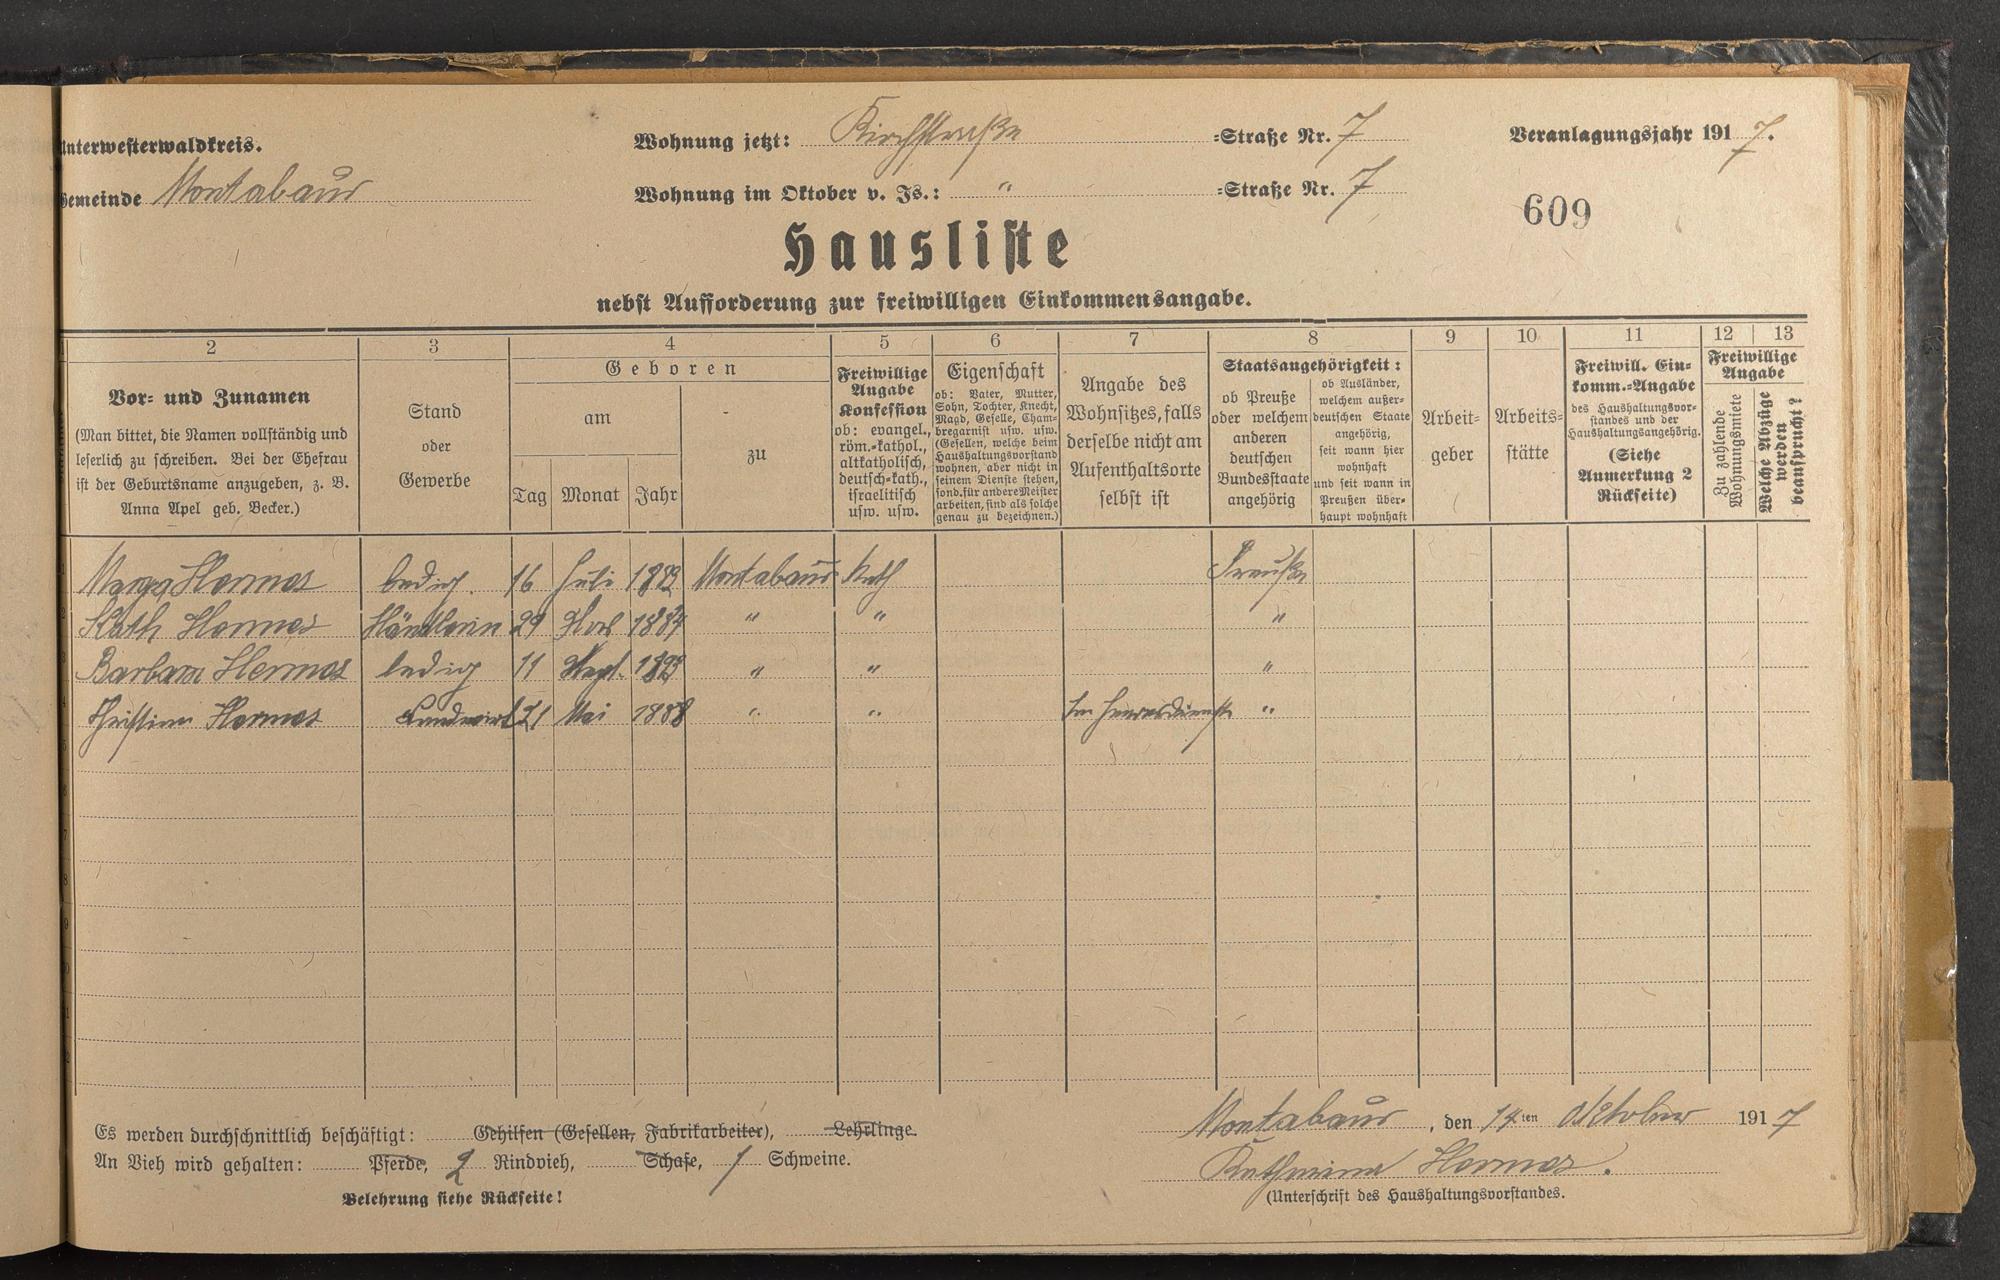 Unterwesterwaldkreis.
Gemeinde Montabaur
Wohnung jetzt: Kirchstraße =Straße Nr. 7
Wohnung im Oktober v. Js.: " =Straße Nr. 7
Veranlagungsjahr 1917.
609
Hausliste
nebst Aufforderung zur freiwilligen Einkommensangabe.
2 3 4 5 6 7 8 9 10 11 12 13
Vor= und Zunamen
(Man bittet, die Namen vollständig und
leserlich zu schreiben. Bei der Ehefrau
ist der Geburtsname anzugeben, z. B.
Anna Apel geb. Becker.)
Stand
oder
Gewerbe
Geboren
am
Tag Monat Jahr
zu
Freiwillige
Angabe
Konfession
ob: evangel.,
röm.=kathol.,
altkatholisch,
deutsch=kath.,
israelitisch
usw. usw.
Eigenschaft
ob: Vater, Mutter,
Sohn, Tochter, Knecht,
Magd, Geselle, Cham=
bregarnist usw. usw.
(Gesellen, welche beim
Haushaltungsvorstand
wohnen, aber nicht in
seinem Dienste stehen,
sond. für andere Meister
arbeiten, sind als solche
genau zu bezeichnen.)
Angabe des
Wohnsitzes, falls
derselbe nicht am
Aufenthaltsorte
selbst ist
Staatsangehörigkeit:
ob Preuße
oder welchem
anderen
deutschen
Bundesstaate
angehörig
ob Ausländer,
welchem außer=
deutschen Staate
angehörig,
seit wann hier
wohnhaft
und seit wann in
Preußen über=
haupt wohnhaft
Arbeit=
geber
Arbeits=
stätte
Freiwill. Ein=
komm.=Angabe
des Haushaltungsvor=
standes und der
Haushaltungsangehörig.
(Siehe
Anmerkung 2
Rückseite)
Freiwillige
Angabe
Zu zahlende
Wohnungsmiete
Welche Abzüge
werden
beansprucht?
Hermes ledig. 16 Juli Montabaur Kath Preuße
Kath Hermes Händlerin 29 1884 " " "
Barbara Hermes ledig 11 Sept. " " "
Hermes Landwirt 21 Mai 1888 " " Im Heeresdienste "
Es werden durchschnittlich beschäftigt: Gehilfen (Gesellen, Fabrikarbeiter), Lehrlinge.
An Vieh wird gehalten: Pferde, 2 Rindvieh, Schafe, 1 Schweine.
Belehrung siehe Rückseite!
Montabaur, den 14ten Oktober 1917
Katharina Hermes.
(Unterschrift des Haushaltungsvorstandes.